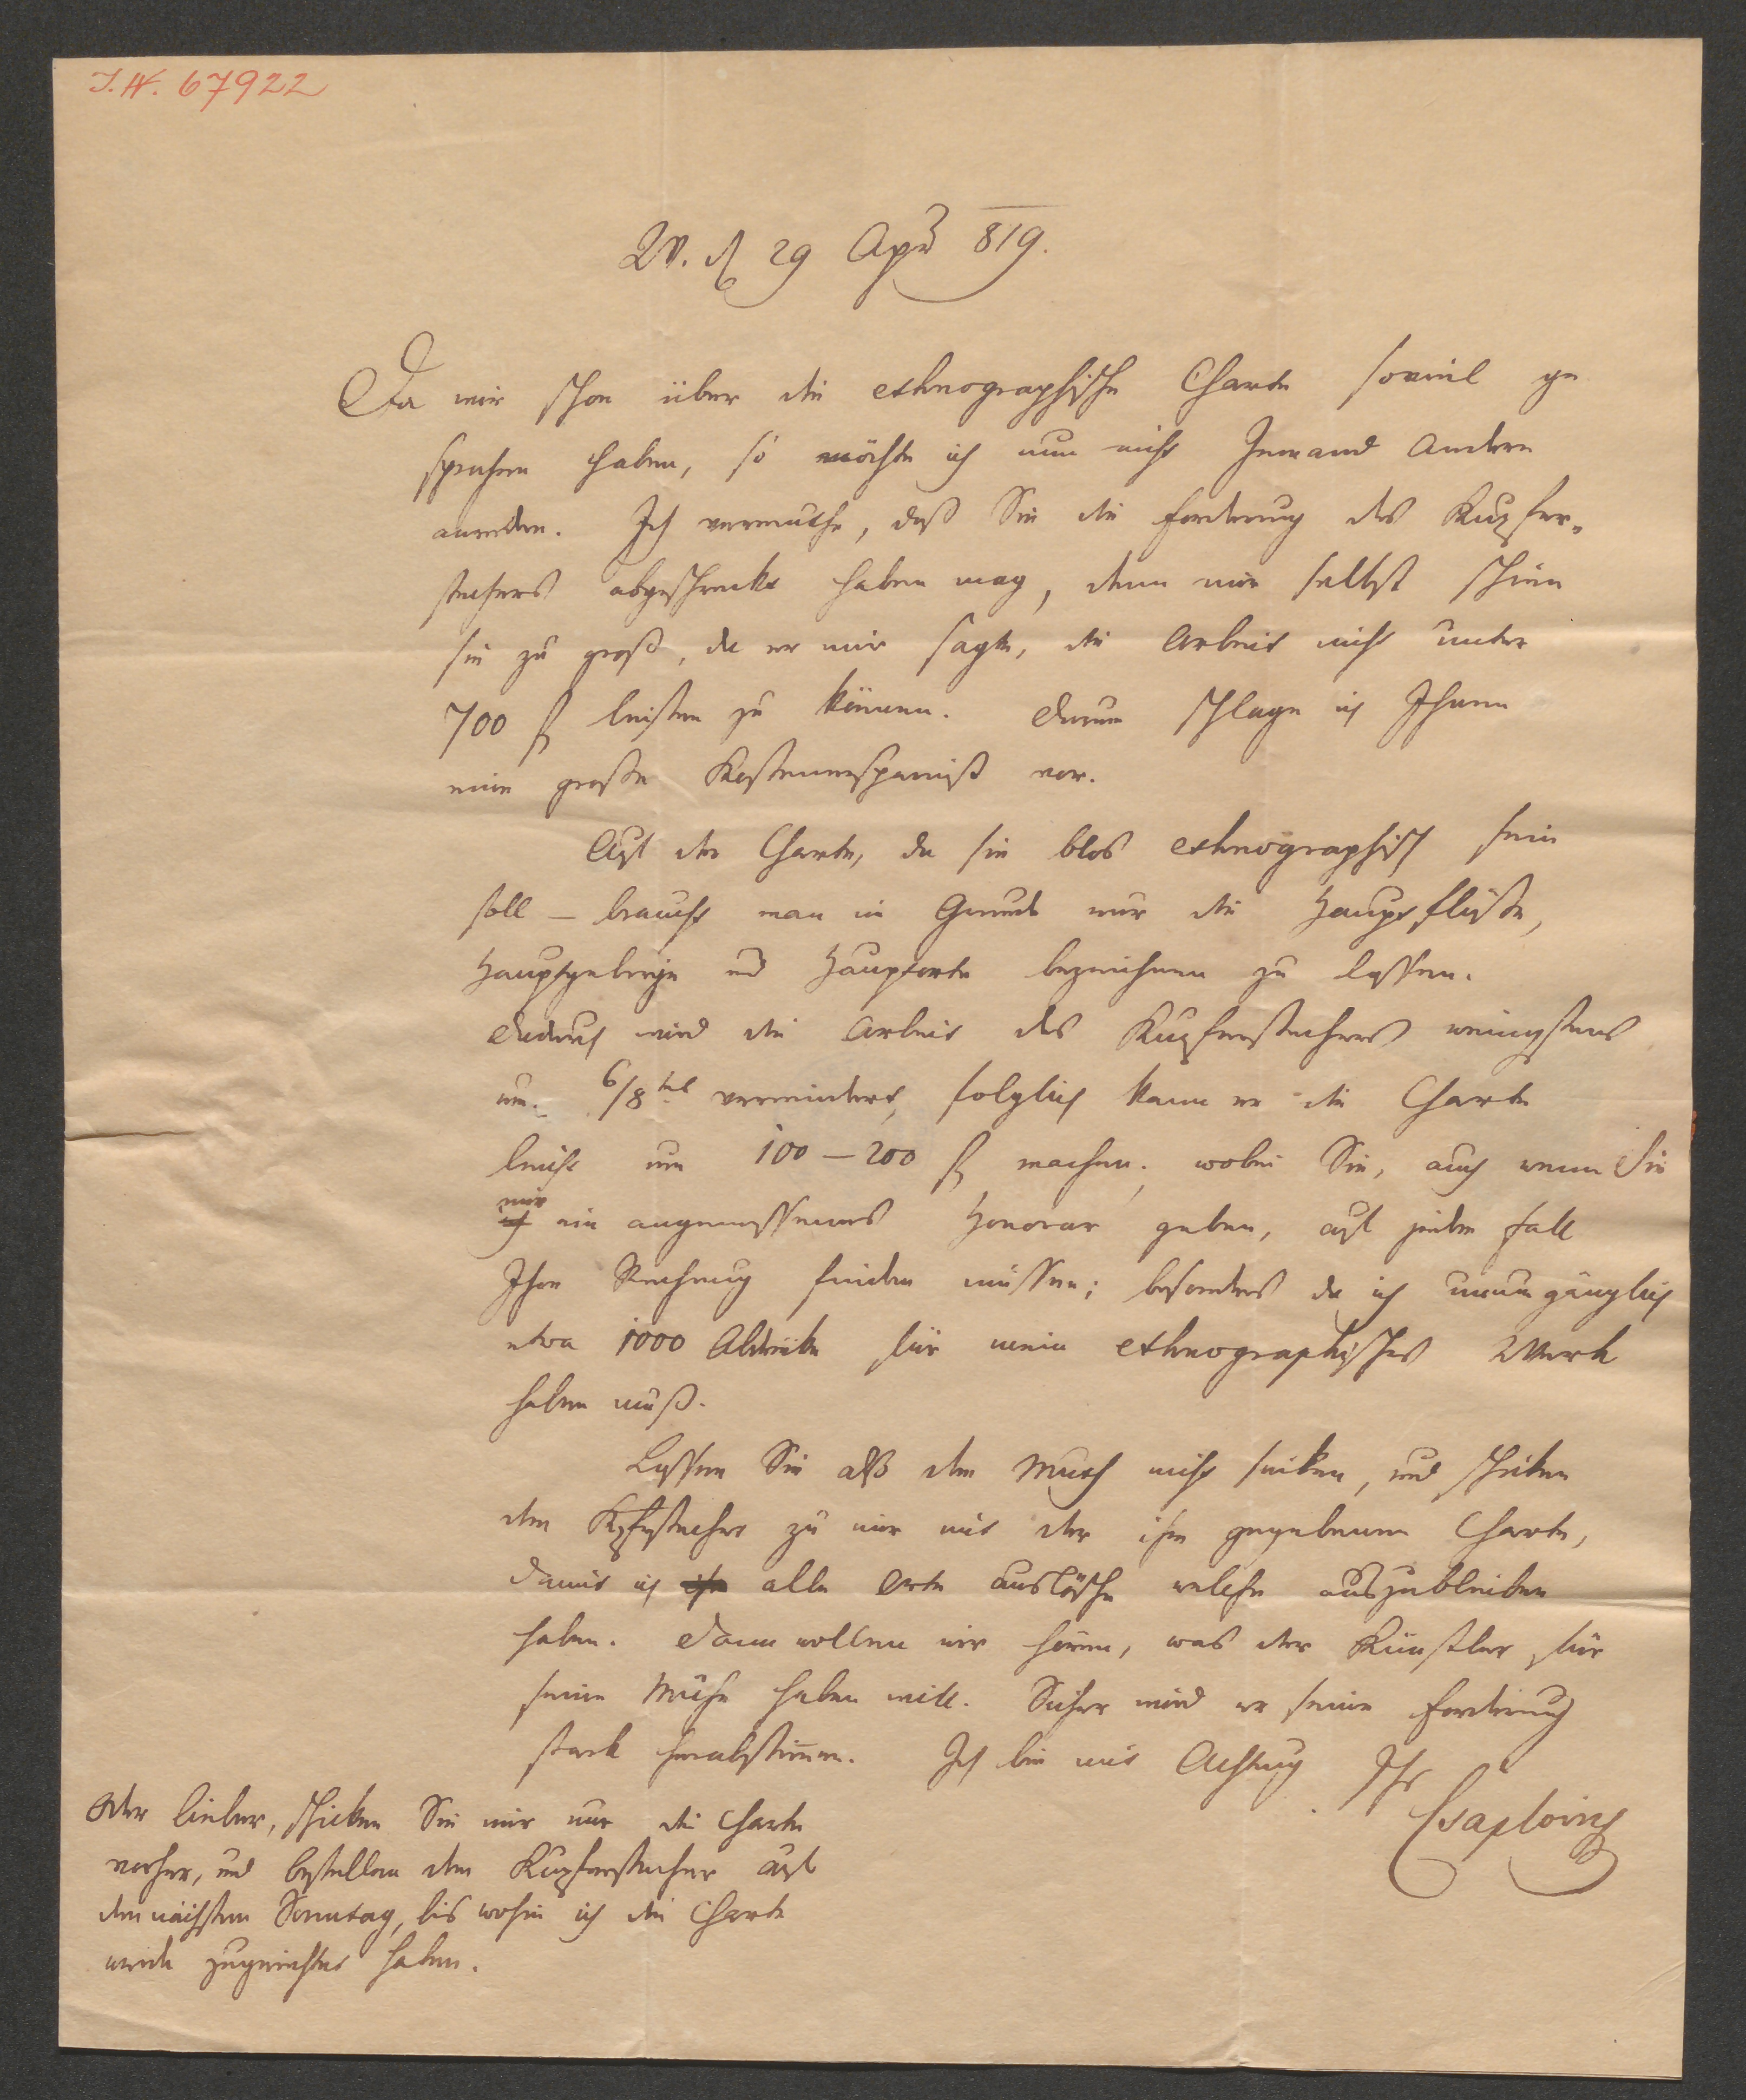 I.N. 67922
W. d 29 Apr 819.
Da wir schon über die ethnographische Charte soviel ge
sprochen haben, so möchte ich nun nicht Jemand Andern
anreden. Ich vermuthe, daß Sie die Forderung des Kupfer-
stechers abgeschreckt haben mag, denn mir selbst schien
sie zu groß, da er mir sagte, die Arbeit nicht unter
700 f leisten zu können. Darum schlage ich Ihnen
eine große Kostenersparniß vor.
Auf der Charte, da sie blos ethnographisch sein
soll – braucht man im Grunde nur die Hauptflüße,
Hauptgebirge und Hauptorte bezeichnen zu lassen.
Dadurch wird die Arbeit des Kupferstechers wenigstens
um 6/8tel vermindert, folglich kann er die Charte
leicht um 100–200 f machen, wobei Sie, auch wenn Sie
mir ein angemessenes Honorar geben, auf jeden Fall
Ihre Rechnung finden müssen; besonders da ich unumgänglich
etwa 1000 Abdrücke für mein ethnographisches Werk
haben muß.
Lassen Sie also den Muth nicht sinken, und schicken
den Kupferstecher zu mir mit der ihm gegebenen Charte,
damit ich alle Orte auslösche welche auszubleiben
haben. Dann wollen wir hören, was der Künstler für
seine Mühe haben will. Sicher wird er seine Forderung
stark herabstimmen. Ich bin mit Achtung Ihr
Csaplovics
Oder lieber, schicken Sie mir nur die Charte
vorher, und bestellen den Kupferstecher auf
den nächsten Sonntag, bis wohin ich die Charte
werde zugerichtet haben.